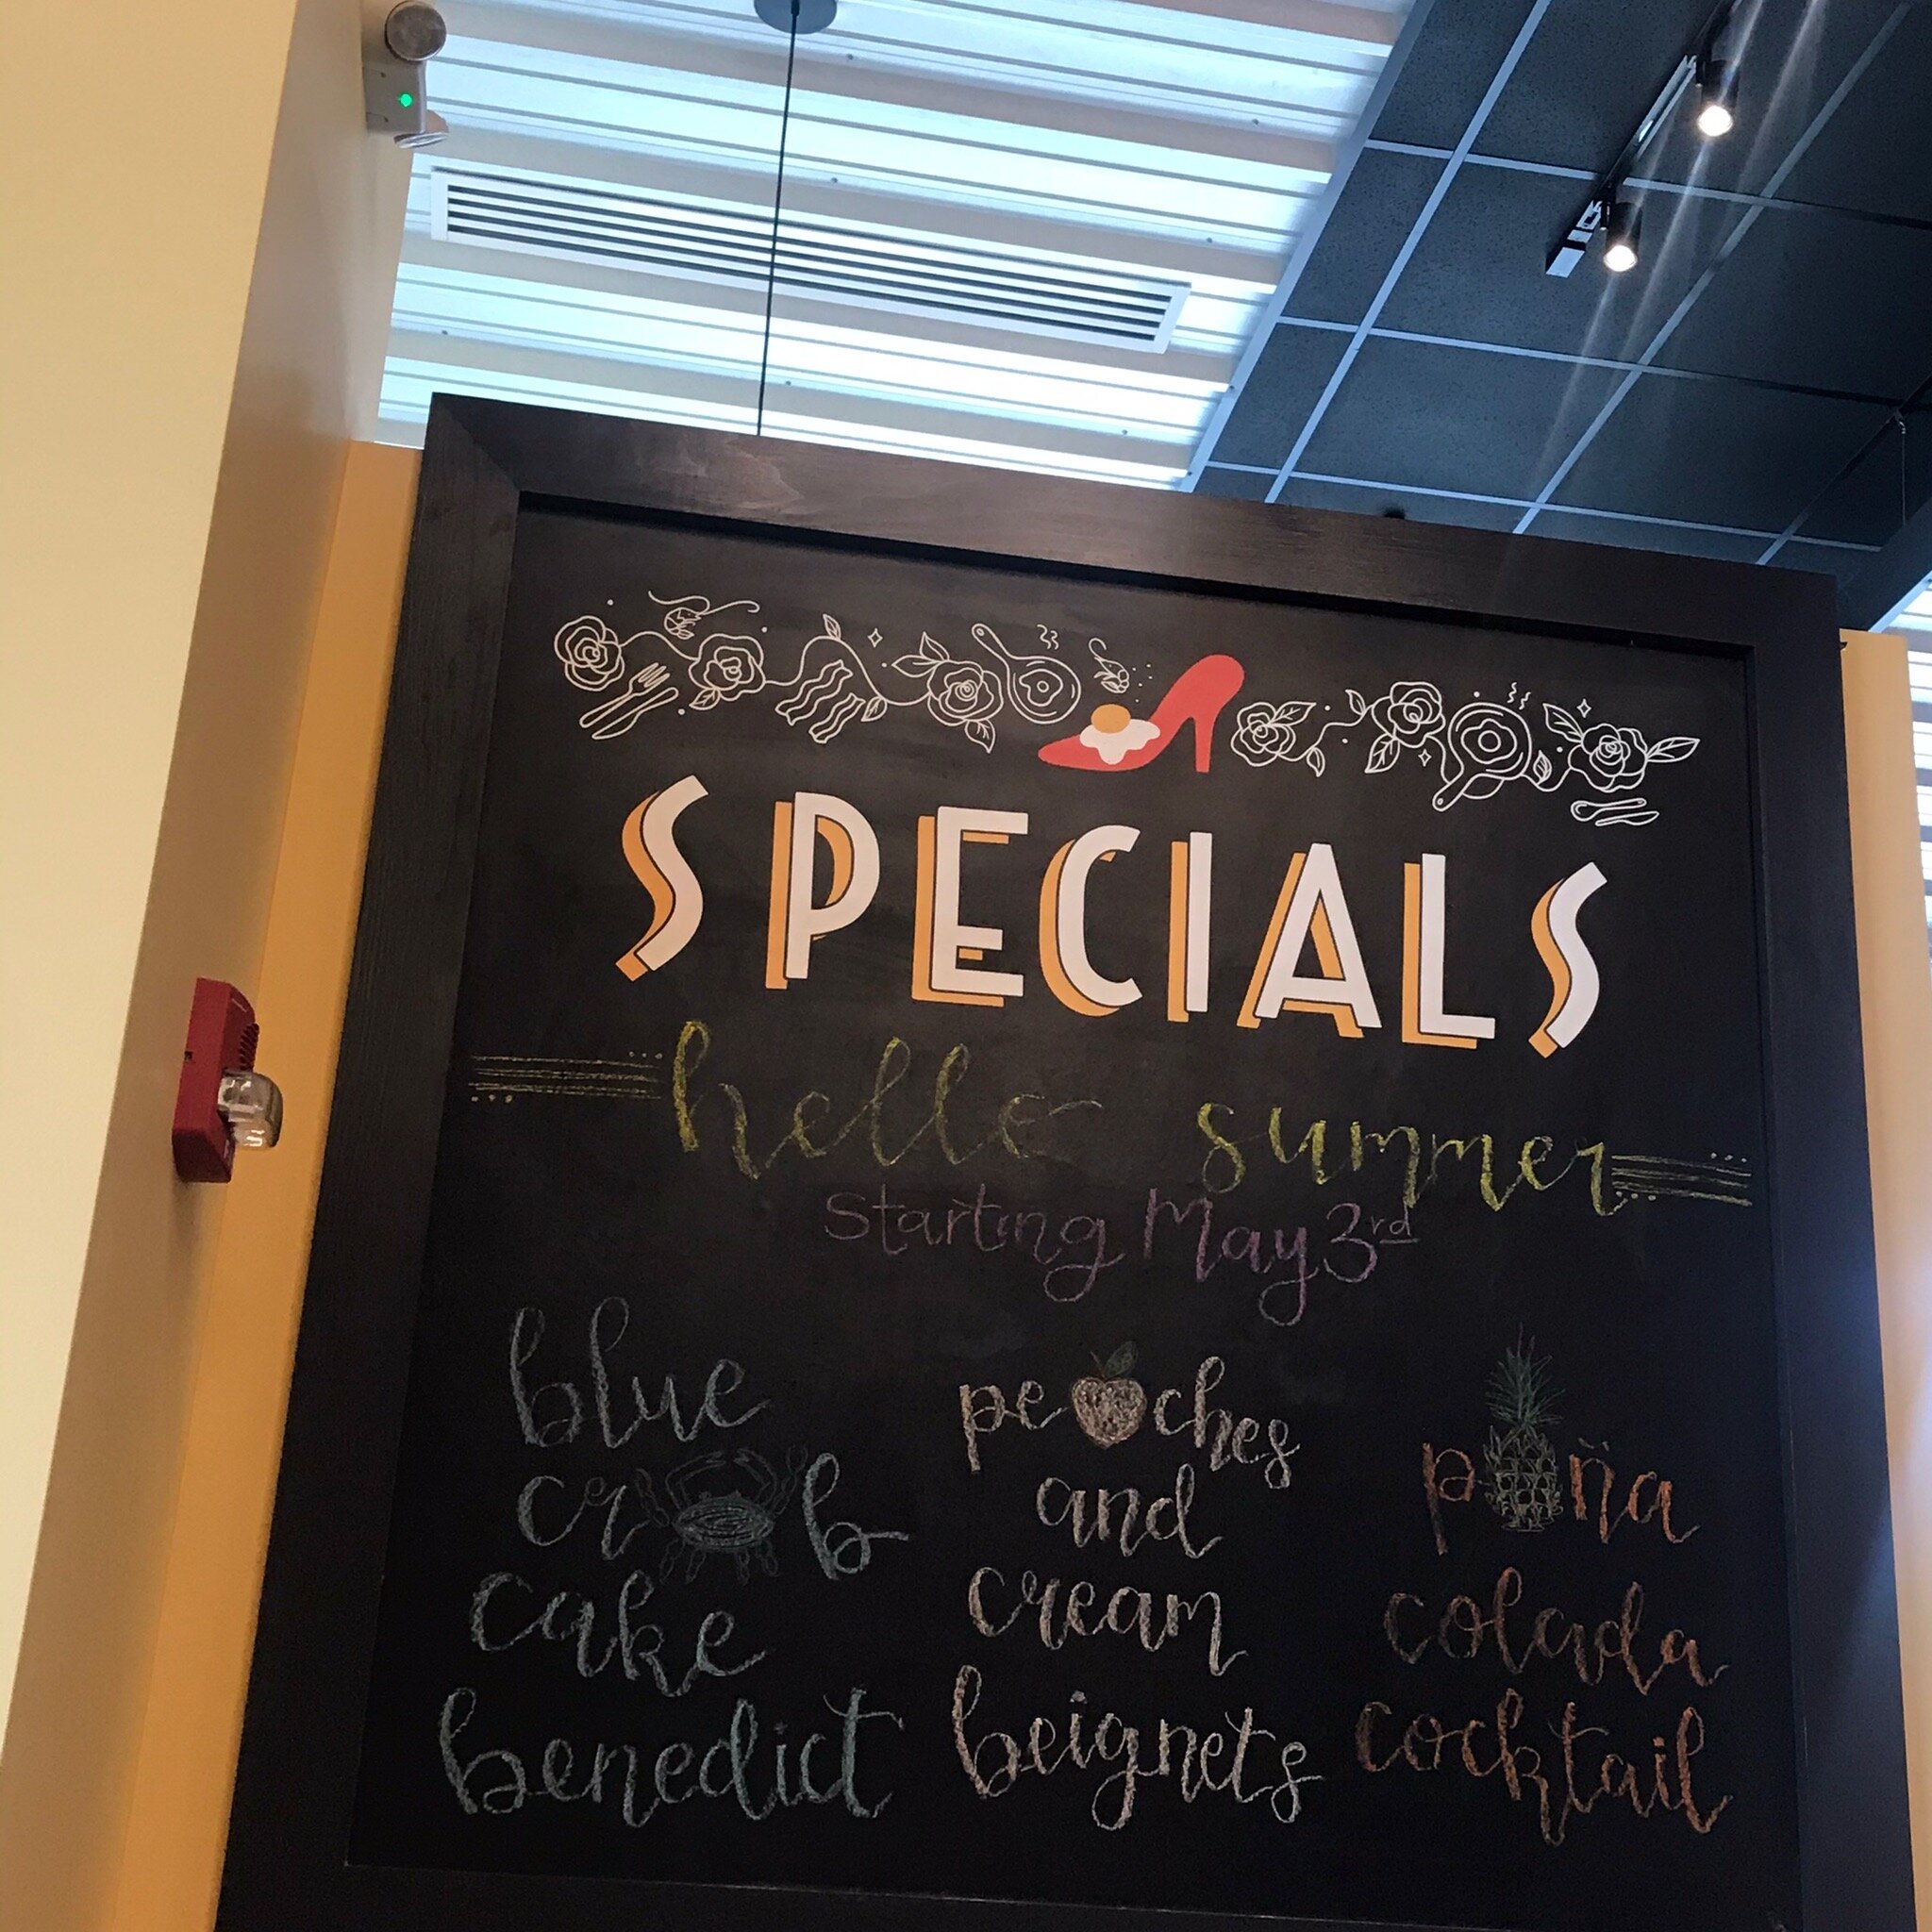 SPECIALS
hello summer
Starting May 3rd
blue
crab
cake
benedict
peaches
and
cream
beignets
piña
colada
cocktail